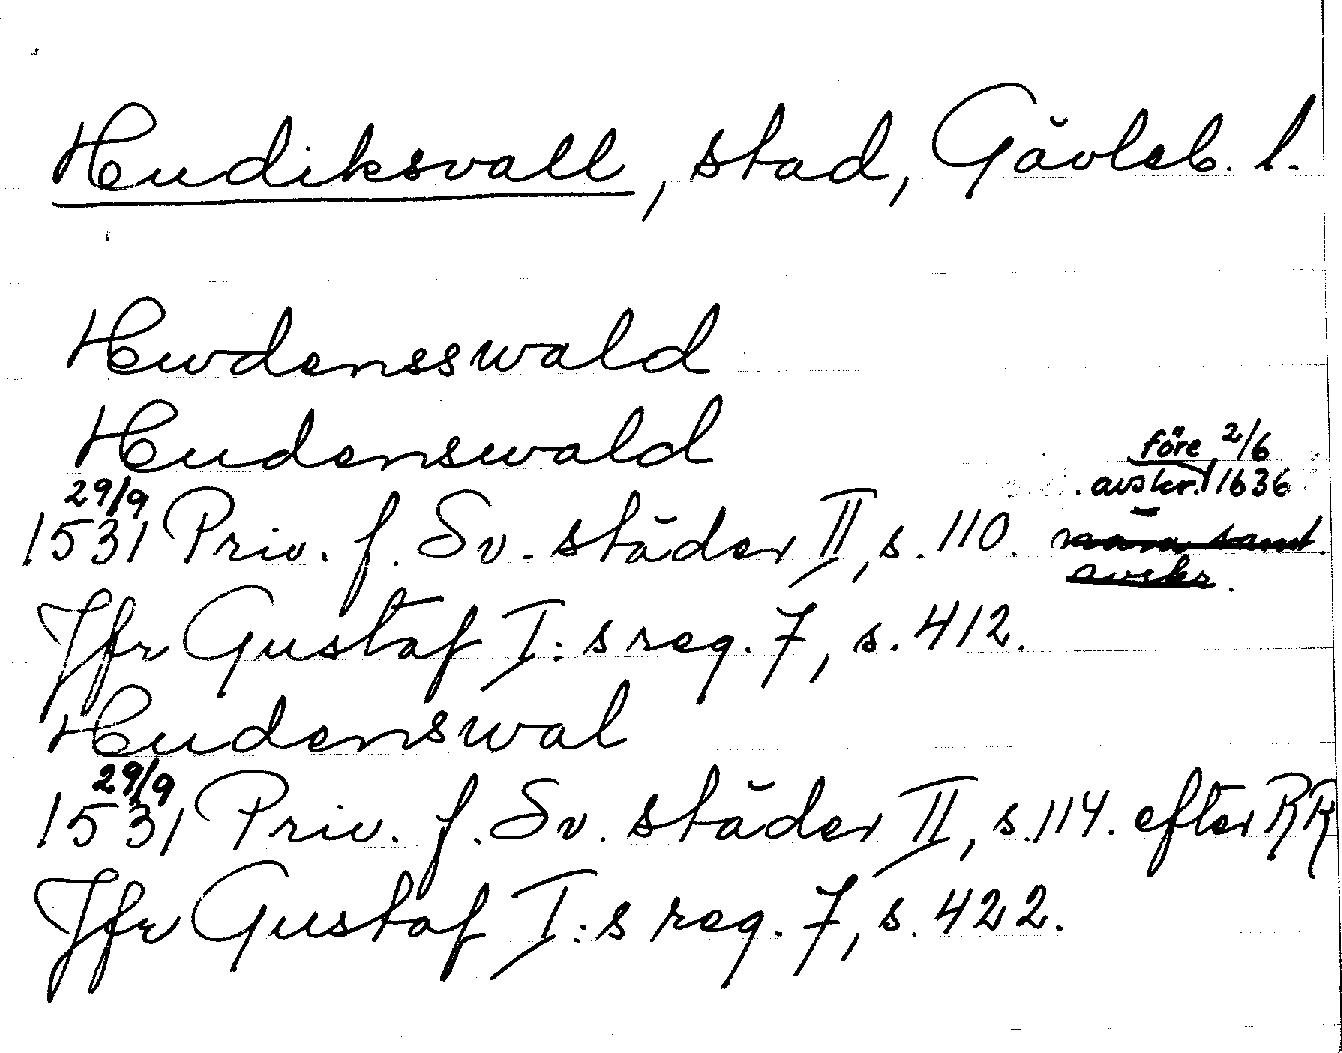 Hudiksvall, stad, Gävleb. l.
Hwdensswald
Hudenswald
före 2/6
avskr. 1636
29/9
1531 Priv. f. Sv. städer II, s. 110. nära samt.
avskr.
Jfr Gustaf I:s reg. 7, s. 412.
Hudenswal
29/9
1531 Priv. f. Sv. städer II, s. 114. efter RR
Jfr Gustaf I:s reg. 7, s. 422.